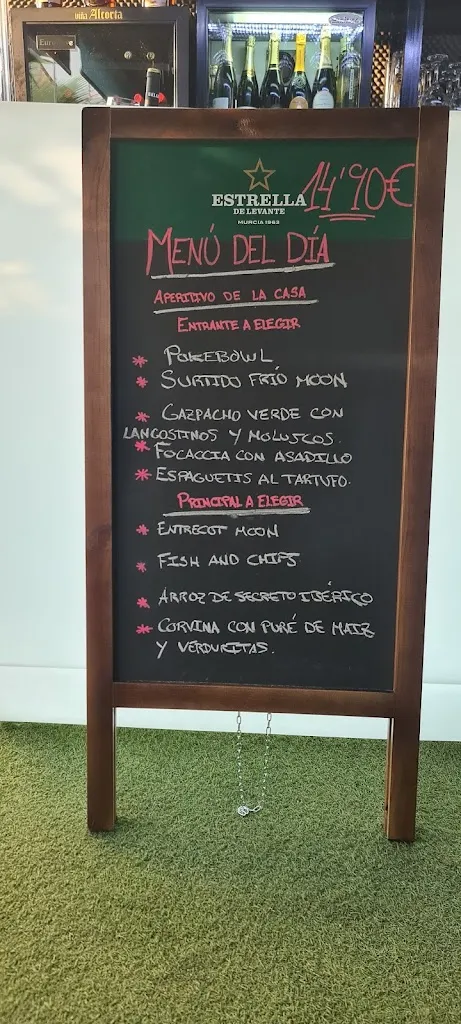 viña Alcorta
ESTRELLA
DE LEVANTE
MURCIA 1963
14'90€
MENÚ DEL DÍA
APERITIVO DE LA CASA
ENTRANTE A ELEGIR
* POKEBOWL
* SURTIDO FRÍO MOON
* GAZPACHO VERDE CON
LANGOSTINOS Y MOLUSCOS.
* FOCACCIA CON ASADILLO
* ESPAGUETIS AL TARTUFO.
PRINCIPAL A ELEGIR
* ENTRECOT MOON
* FISH AND CHIPS
* ARROZ DE SECRETO IBÉRICO
* CORVINA CON PURÉ DE MAIZ
Y VERDURITAS.